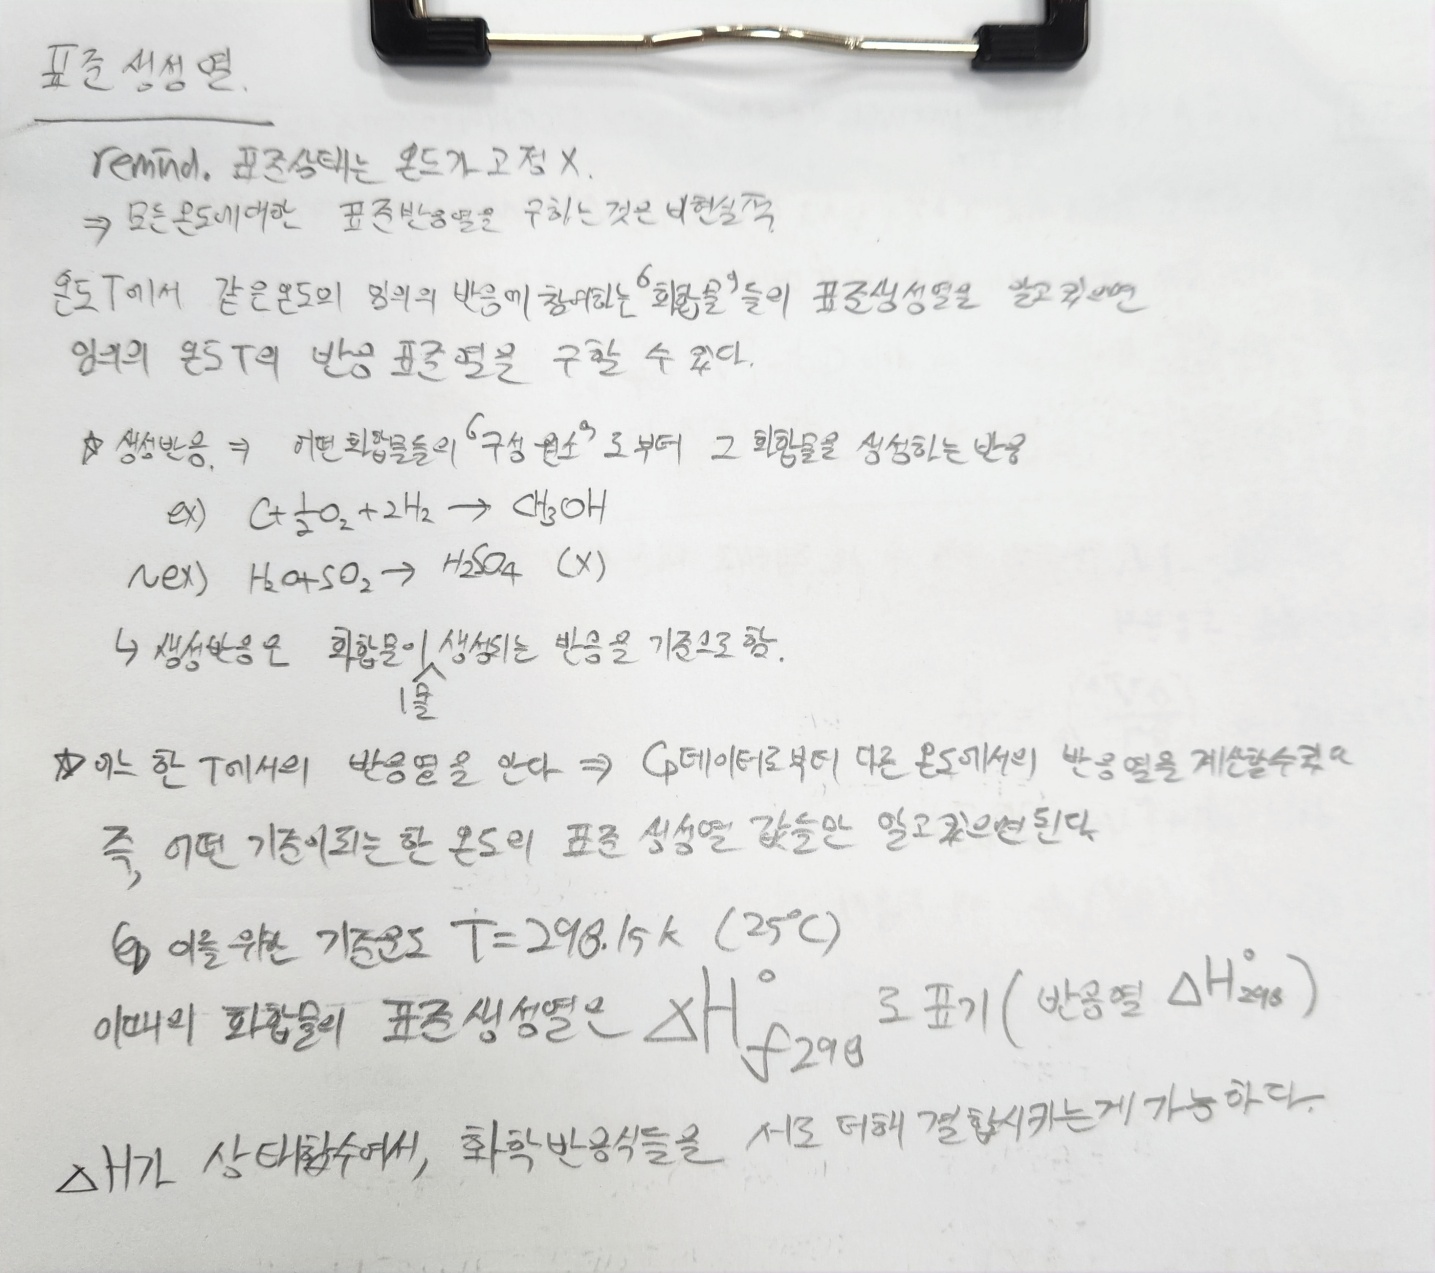 표준 생성 열.
remind. 표준상태는 온도가 고정 X.
⇒ 모든 온도에 대한 표준반응열을 구하는 것은 비현실적
온도 T에서 같은 온도의 임의의 반응에 참여하는 "화합물"들의 표준생성열을 알고 있으면
임의의 온도 T의 반응 표준 열을 구할 수 있다.
☆ 생성반응. ⇒ 어떤 화합물들의 "구성 원소"로부터 그 화합물을 생성하는 반응
ex) C+½O₂+2H₂ → CH₃OH
~ex) H₂O+SO₂ → H₂SO₄ (X)
↳ 생성반응은 화합물이 1몰 생성되는 반응을 기준으로 함.
☆ 어느 한 T에서의 반응열을 안다 ⇒ Cp데이터로부터 다른 온도에서의 반응열을 계산할 수 있
즉, 어떤 기준이 되는 한 온도의 표준 생성열 값들만 알고 있으면 된다.
이를 위한 기준온도 T=298.15K (25°C)
이때의 화합물의 표준생성열은 ΔH°f298 로 표기 (반응열 ΔH°298)
ΔH가 상태함수여서, 화학반응식들을 서로 더해 결합시키는게 가능하다.